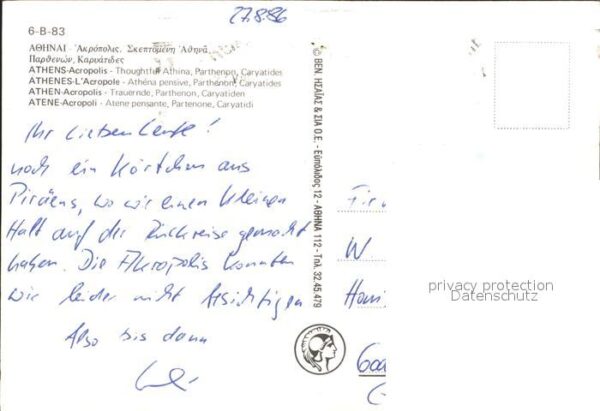 27.8.86
6-B-83
ΑΘΗΝΑΙ - Ἀκρόπολις. Σκεπτομένη Ἀθηνᾶ
Παρθενών, Καρυάτιδες
ATHENS-Acropolis - Thoughtful Athina, Parthenon, Caryatides
ATHENES-L'Acropole - Athéna pensive, Parthénon, Caryatides
ATHEN-Acropolis - Trauernde, Parthenon, Caryatiden
ATENE-Acropoli - Atene pensante, Partenone, Caryatidi
Ihr lieben Leute!
noch ein Kärtchen aus
Piräus, wo wir einen kleinen
Halt auf der Rückreise gemacht
haben. Die Akropolis konnten
wir leider nicht besichtigen
Also bis dann
© ΒΕΝ. ΗΣΑΪΑΣ & ΣΙΑ Ο.Ε. - Εὐπόλιδος 12 - ΑΘΗΝΑ 112 - Τηλ. 32.45.479
Fir
W
privacy protection
Datenschutz